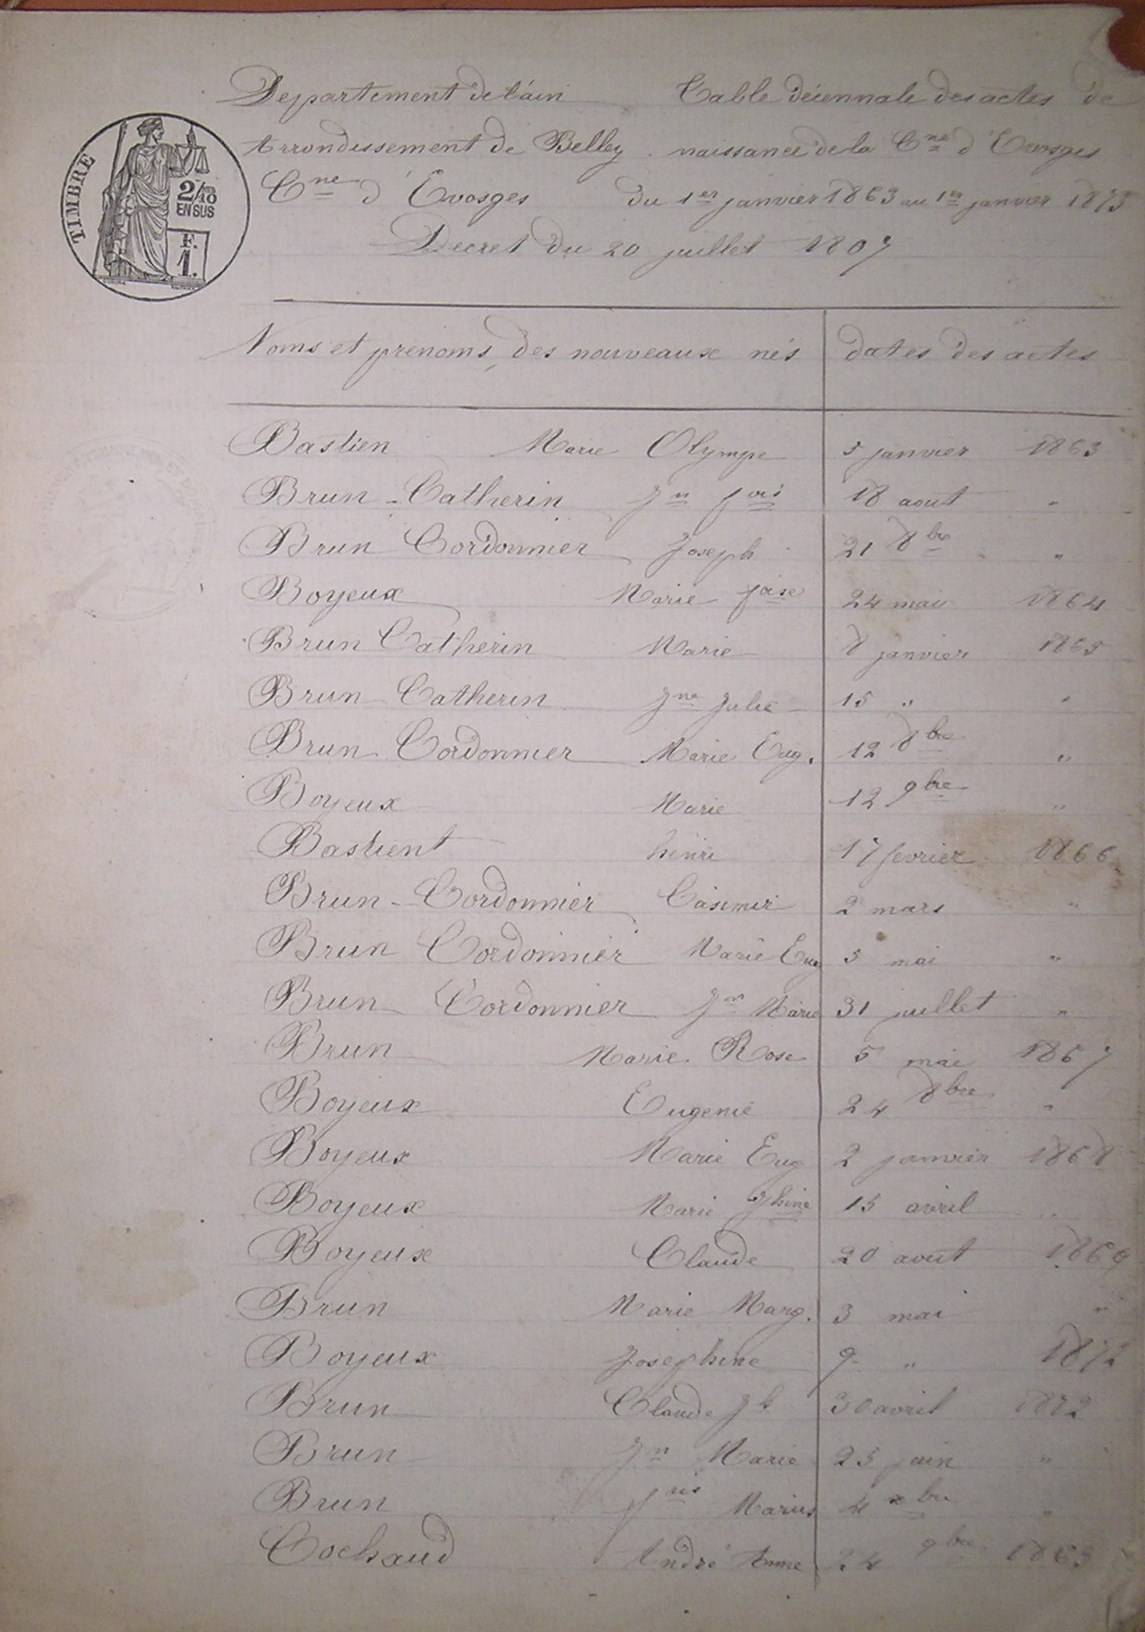 Departement de l'ain Table décennale des actes de
Arrondissement de Belley naissance de la Cne d'Evosges
Cne d'Evosges du 1er janvier 1863 au 1er janvier 1873
Décret du 20 juillet 1807
TIMBRE
2/10
EN SUS
F.
1.
Noms et prenoms des nouveaux nés dates des actes
Bastien Marie Olympe 5 janvier 1863
Brun-Catherin Jn fois 18 aout "
Brun Cordonnier Joseph 21 8bre "
Boyeux Marie foise 24 mai 1864
Brun Catherin Marie 8 janvier 1865
Brun-Catherin Jne Julie 15 " "
Brun-Cordonnier Marie Eug. 12 8bre "
Boyeux Marie 12 9bre "
Bastient henri 17 fevrier 1866
Brun-Cordonnier Casimir 2 mars "
Brun Cordonnier Marie Eug 5 mai "
Brun Cordonnier Jn Marie 31 juillet "
Brun Marie Rose 5 mai 1867
Boyeux Eugenie 24 8bre "
Boyeux Marie Eug 2 janvier 1868
Boyeux Marie Jphine 15 avril "
Boyeux Claude 20 aout 1869
Brun Marie Marg. 3 mai "
Boyeux Josephine 9 " 1872
Brun Claude Jh 30 avril 1872
Brun Jn Marie 25 juin "
Brun Marius 4 xbre "
Cochaud André Anne 24 9bre 1863